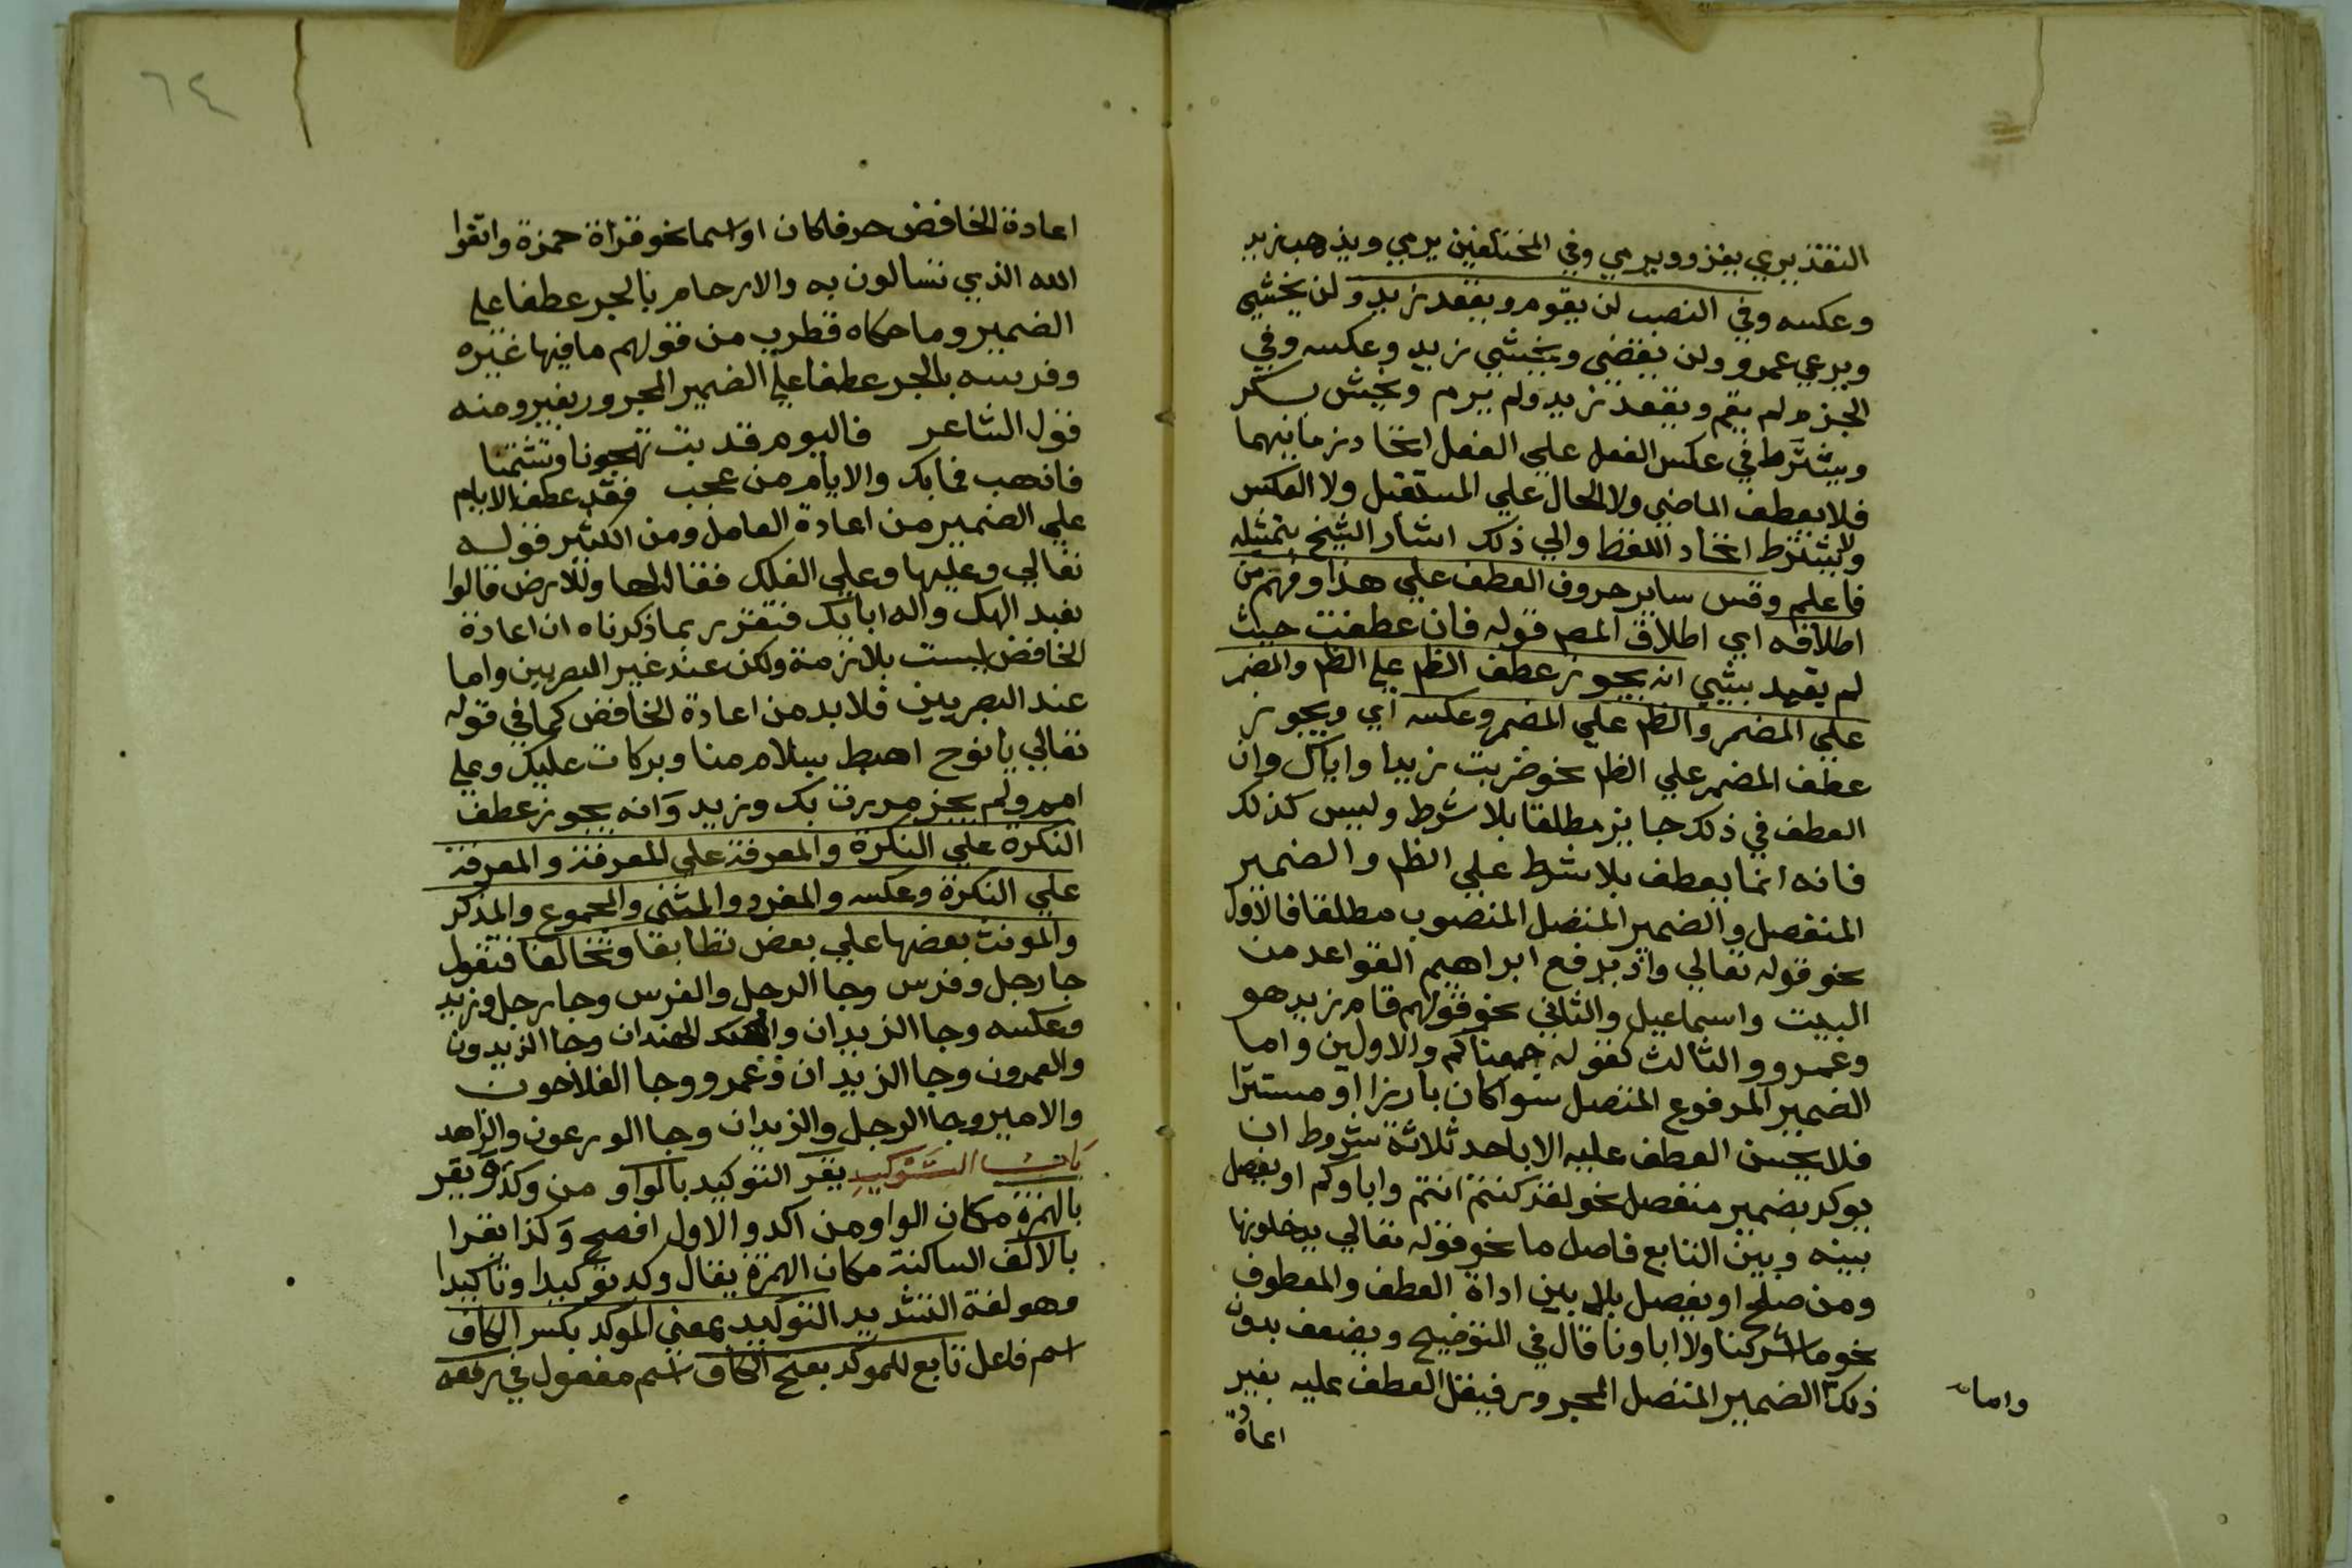 التقديري يغزو ويرمي وفي المختلفين يرمي ويذهب زيد
وعكسه وفي النصب لن يقوم ويقعد زيد ولن يخشي
ويرعي عمرو ولن يقضي ويخشي زيد وعكسه وفي
الجزم لم يقم ويقعد زيد ولم يرم ويخش بكر
ويشترط في عكس الفعل علي الفعل اتحاد زمانيهما
فلا يعطف الماضي ولا الحال علي المستقبل ولا العكس
ولا يشترط اتحاد اللفظ والي ذلك اشار الشيخ بتمثيله
فاعلم وقس ساير حروف العطف علي هذا وفهم من
اطلاقه اي اطلاق المص قوله فان عطفت حيث
لم يقيد بشيي انه يجوز عطف الظم علي الظم والمضمر
علي المضمر والظم علي المضمر وعكسه اي ويجوز
عطف المضمر علي الظم نحو ضربت زيدا واياك وان
العطف في ذلك جايز مطلقا بلا شرط وليس كذلك
فانه انما يعطف بلا شرط علي الظم والضمير
المنفصل والضمير المتصل المنصوب مطلقا فالاول
نحو قوله تعالي واذ يرفع ابراهيم القواعد من
البيت واسماعيل والثاني نحو قولهم قام زيد هو
وعمرو والثالث كقوله جمعناكم والاولين واما
الضمير المرفوع المتصل سوا كان بارزا او مستترا
فلا يحسن العطف عليه الا باحد ثلاثة شروط ان
يوكد بضمير منفصل نحو لقد كنتم انتم واباوكم او يفصل
بينه وبين التابع فاصل ما نحو قوله تعالي يدخلونها
ومن صلح او يفصل بلا بين اداة العطف والمعطوف
نحو ما اشركنا ولا اباونا قال في التوضيح ويضعف بدون
ذلك الضمير المتصل المجرور فيقل العطف عليه بغير
واما
اعادة
٦٤
اعادة الخافض حرفا كان او اسما نحو قراة حمزة واتقوا
الله الذي تسالون به والارحام بالجر عطفا علي
الضمير وما حكاه قطرب من قولهم ما فيها غيره
وفرسه بالجر عطفا علي الضمير المجرور بغير ومنه
قول الشاعر فاليوم قد بت تهجونا وتشتمنا
فاذهب فما بك والايام من عجب فقد عطف الايام
علي الضمير من اعادة العامل ومن الكثير قوله
تعالي وعليها وعلي الفلك فقال لها وللارض قالوا
نعبد الهك واله ابايك فتقرر بما ذكرناه ان اعادة
الخافض ليست بلازمة ولكن عند غير البصريين واما
عند البصريين فلا بد من اعادة الخافض كما في قوله
تعالي يا نوح اهبط بسلام منا وبركات عليك وعلي
امم ولم يجز مررت بك وزيد وانه يجوز عطف
النكرة علي النكرة والمعرفة علي المعرفة والمعرفة
علي النكرة وعكسه والمفرد والمثني والمجموع والمذكر
والمونث بعضها علي بعض تطابقا وتخالفا فتقول
جا رجل وفرس وجا الرجل والفرس وجا رجل وزيد
وعكسه وجا الزيدان والهندان وجا الزيدون
والعمرون وجا الزيدان وعمرو وجا الفلاحون
والامير وجا الرجل والزيدان وجا الورعون والزاهد
باب التوكيد يقر التوكيد بالواو من وكد ويقر
بالهمزة مكان الواو من اكد والاول افصح وكذا يقرا
بالالف الساكنة مكان الهمزة يقال وكد توكيدا وتاكيدا
وهو لغة التشديد التوكيد بمعني الموكد بكسر الكاف
اسم فاعل تابع للموكد بفتح الكاف اسم مفعول في رفعه